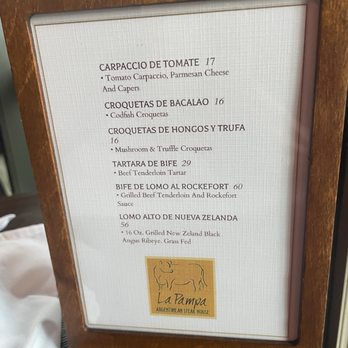 CARPACCIO DE TOMATE 17
• Tomato Carpaccio, Parmesan Cheese
And Capers
CROQUETAS DE BACALAO 16
• Codfish Croquetas
CROQUETAS DE HONGOS Y TRUFA
16
• Mushroom & Truffle Croquetas
TARTARA DE BIFE 29
• Beef Tenderloin Tartar
BIFE DE LOMO AL ROCKEFORT 60
• Grilled Beef Tenderloin And Rockefort
Sauce
LOMO ALTO DE NUEVA ZELANDA
56
• 16 Oz. Grilled New Zeland Black
Angus Ribeye. Grass Fed
La Pampa
ARGENTINEAN STEAK HOUSE